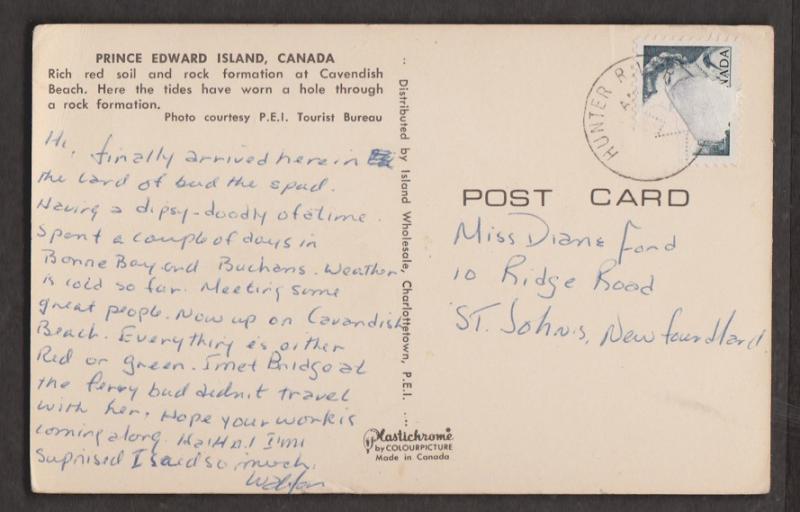 PRINCE EDWARD ISLAND, CANADA
Rich red soil and rock formation at Cavendish
Beach. Here the tides have worn a hole through
a rock formation.
Photo courtesy P.E.I. Tourist Bureau
Hi, finally arrived here in
the land of bud the spud.
Having a dipsy-doodly of a time.
Spent a couple of days in
Bonne Bay and Buchans. Weather
is cold so far. Meeting some
great people. Now up on Cavandish
Beach. Everything is either
Red or green. I met Bridge at
the ferry bud didn't travel
with her. Hope your work is
coming along. Ha! Ha! I'm
suprised I said so much.
Distributed by Island Wholesale, Charlottetown, P.E.I.
Plastichrome
by COLOURPICTURE
Made in Canada
HUNTER
CANADA
POST CARD
Miss Diane Ford
10 Ridge Road
ST. John's, Newfoundland